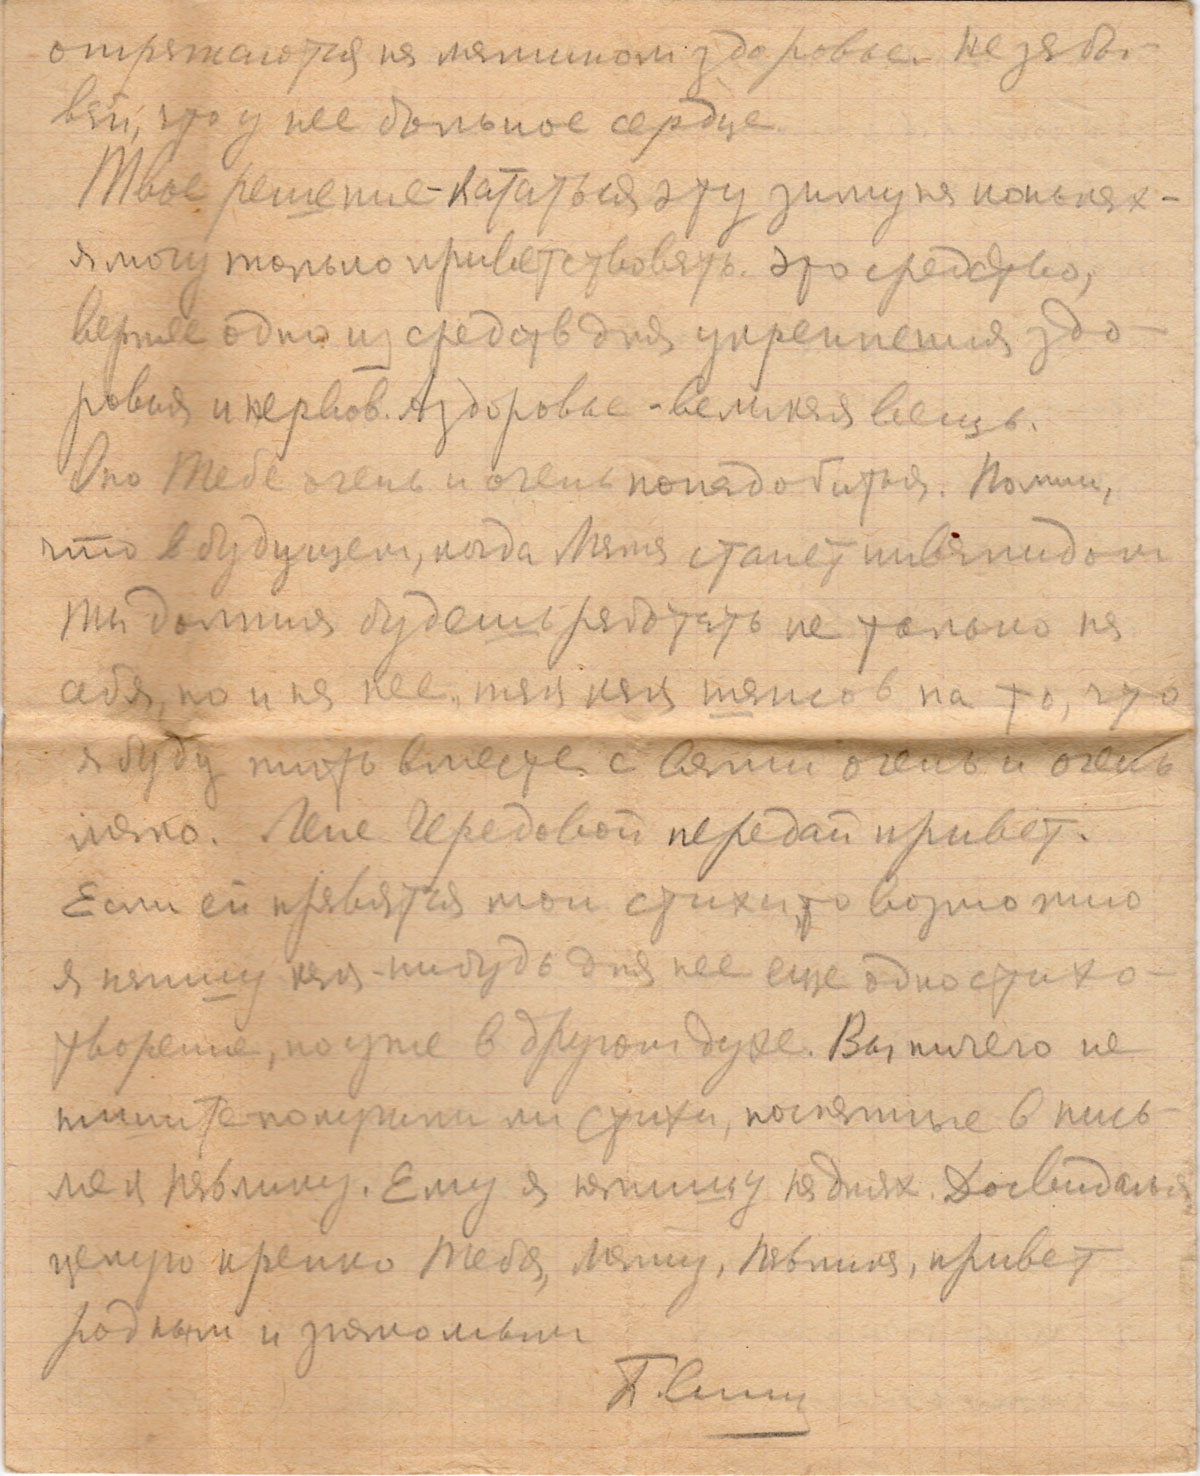 отражаются на мамином здоровье. Не забы-
вай, что у нее больное сердце.
Твое решение - кататься эту зиму на коньках -
я могу только приветствовать. Это средство,
вернее одно из средств для укрепления здо-
ровья и нервов. А здоровье - великая вещь.
Оно Тебе очень и очень понадобиться. Помни,
что в будущем, когда Мама станет инвалидом
ты должна будешь работать не только на
себя, но и на нее, так как шансов на то, что
я буду жить вместе с вами очень и очень
мало. Лене Чередовой передай привет.
Если ей нравятся мои стихи, то возможно
я напишу как-нибудь для нее еще одно стихо-
творение, но уже в другом духе. Вы ничего не
пишите получили ли стихи, посланные в пись-
ме к Павлику. Ему я напишу на днях. Досвиданья
целую крепко Тебя, Маму, Павлика, привет
родным и знакомым